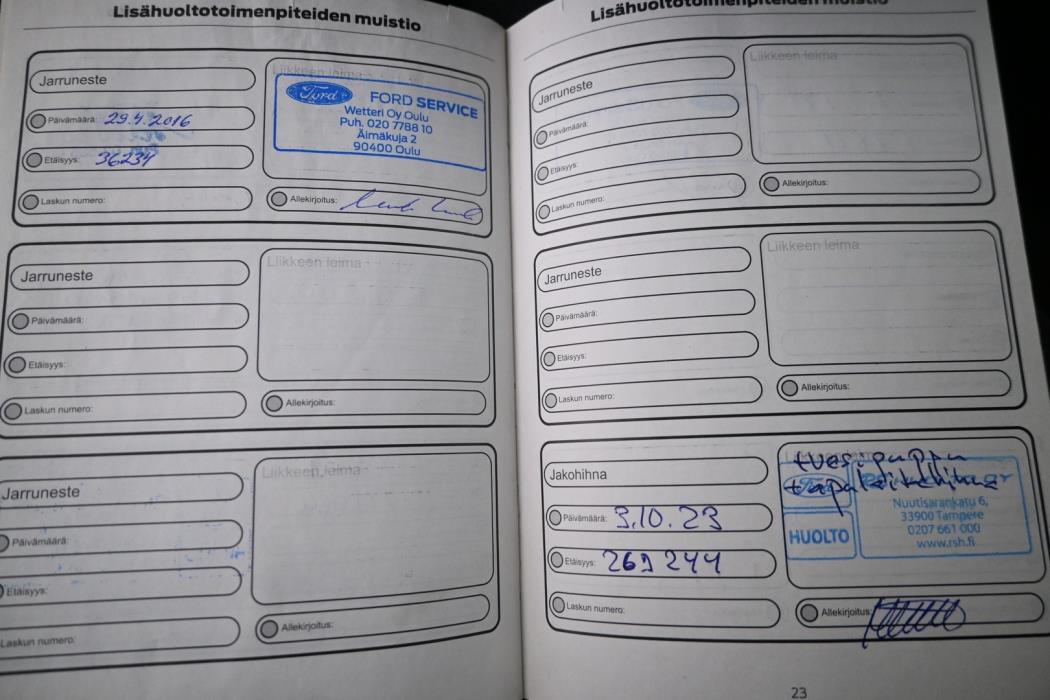 Lisähuoltotoimenpiteiden muistio
Jarruneste
Liikkeen leima
Päivämäärä: 29.4.2016
Etäisyys: 36234
Laskun numero:
Ford FORD SERVICE
Wetteri Oy Oulu
Puh. 020 7788 10
Äimäkuja 2
90400 Oulu
Allekirjoitus:
Jarruneste
Liikkeen leima
Päivämäärä:
Etäisyys:
Laskun numero:
Allekirjoitus:
Jarruneste
Liikkeen leima
Päivämäärä:
Etäisyys:
Laskun numero:
Allekirjoitus:
Lisähuoltotoimenpiteiden muistio
Jarruneste
Liikkeen leima
Päivämäärä:
Etäisyys:
Laskun numero:
Allekirjoitus:
Jarruneste
Liikkeen leima
Päivämäärä:
Etäisyys:
Laskun numero:
Allekirjoitus:
Jakohihna
Päivämäärä: 3.10.23
Etäisyys: 269244
Laskun numero:
+vesipumppu
HUOLTO
Nuutisarankatu 6,
33900 Tampere
0207 661 000
www.rsh.fi
Allekirjoitus:
23